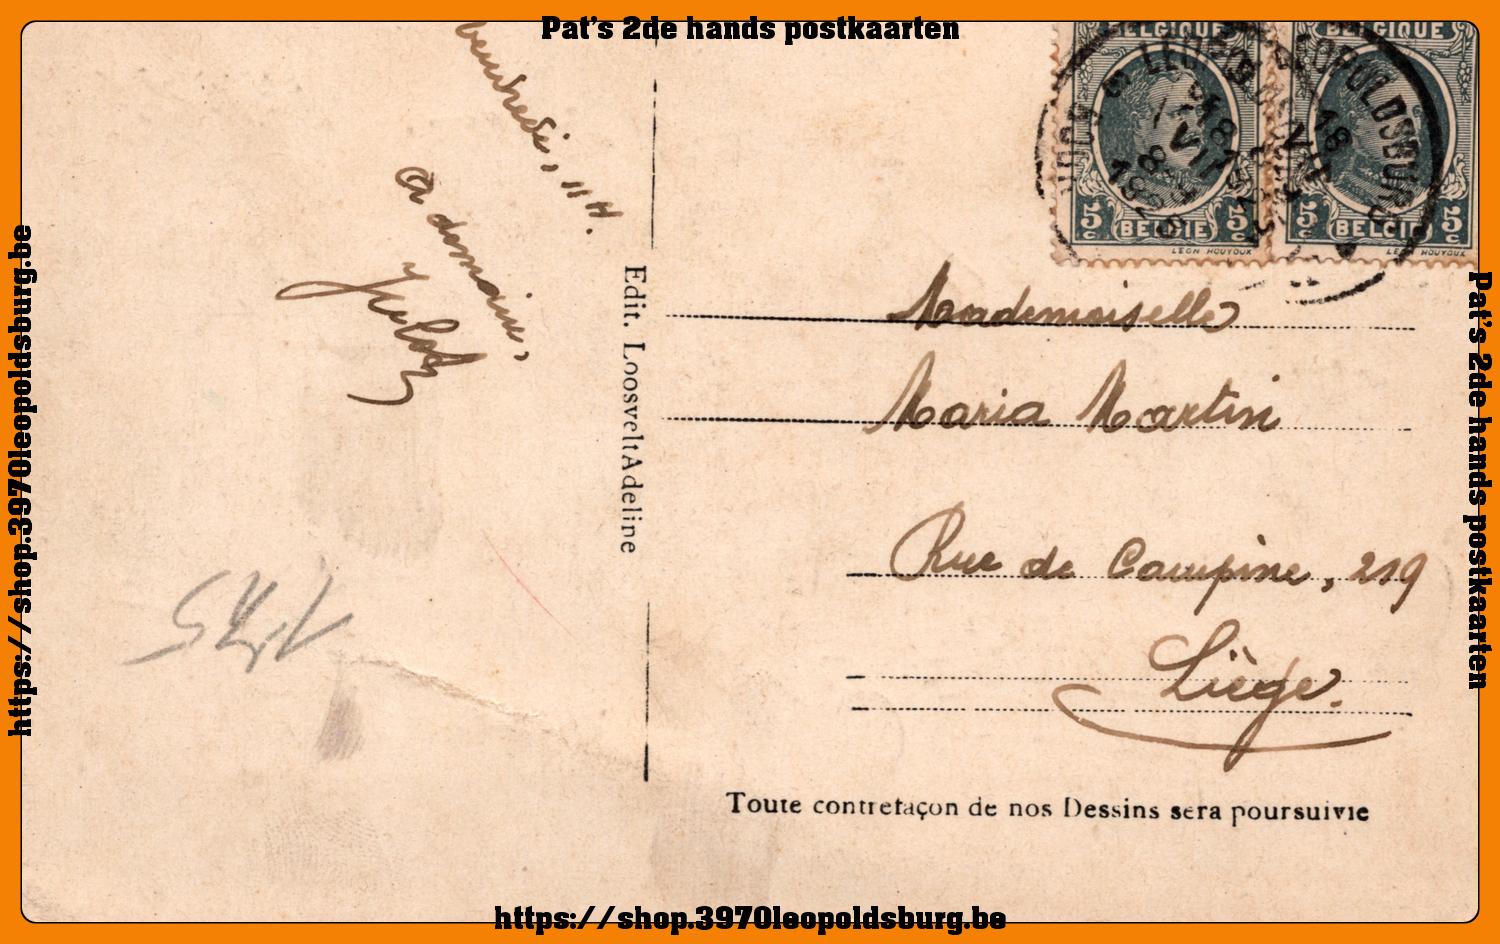 Pat's 2de hands postkaarten
vendredi, 11 H.
a demain,
BELGIQUE
BELGIQUE
LEOPOLDSBURG
18
1926
5c
BELGIË
5c
5c
BELGIË
5c
LEON HOUYOUX
LEON HOUYOUX
Edit. Loosvelt Adeline
Mademoiselle
Maria Martin
Rue de Campine, 219
Liège.
Toute contrefaçon de nos Dessins sera poursuivie
https://shop.3970leopoldsburg.be
Pat's 2de hands postkaarten
https://shop.3970leopoldsburg.be